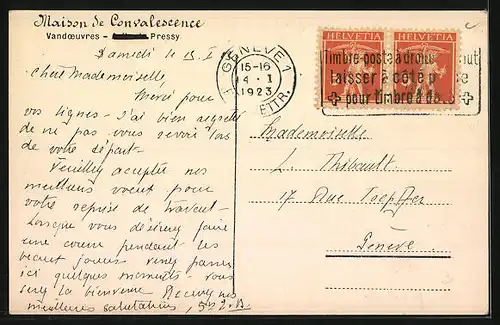 Maison de Convalescence
Vandœuvres - Pressy
Samedi le 13. I
Chère Mademoiselle
Merci pour
vos lignes - J'ai bien regretté
de ne pas vous revoir las
de votre départ-
Veuillez accepter nos
meilleurs vœux pour
votre reprise de travail-
Lorsque vous désirez faire
une course pendant les
beaux jours venez passer
ici quelques moments - vous
serez la bienvenue Recevez nos
meilleures salutations,
GENÈVE 1
15-16
14. I
1923
LETTR.
HELVETIA HELVETIA
Timbre-poste à droite en haut
laisser à côté place
pour timbre à date
Mademoiselle
L. Thibault.
17 Rue Toepffer
Genève